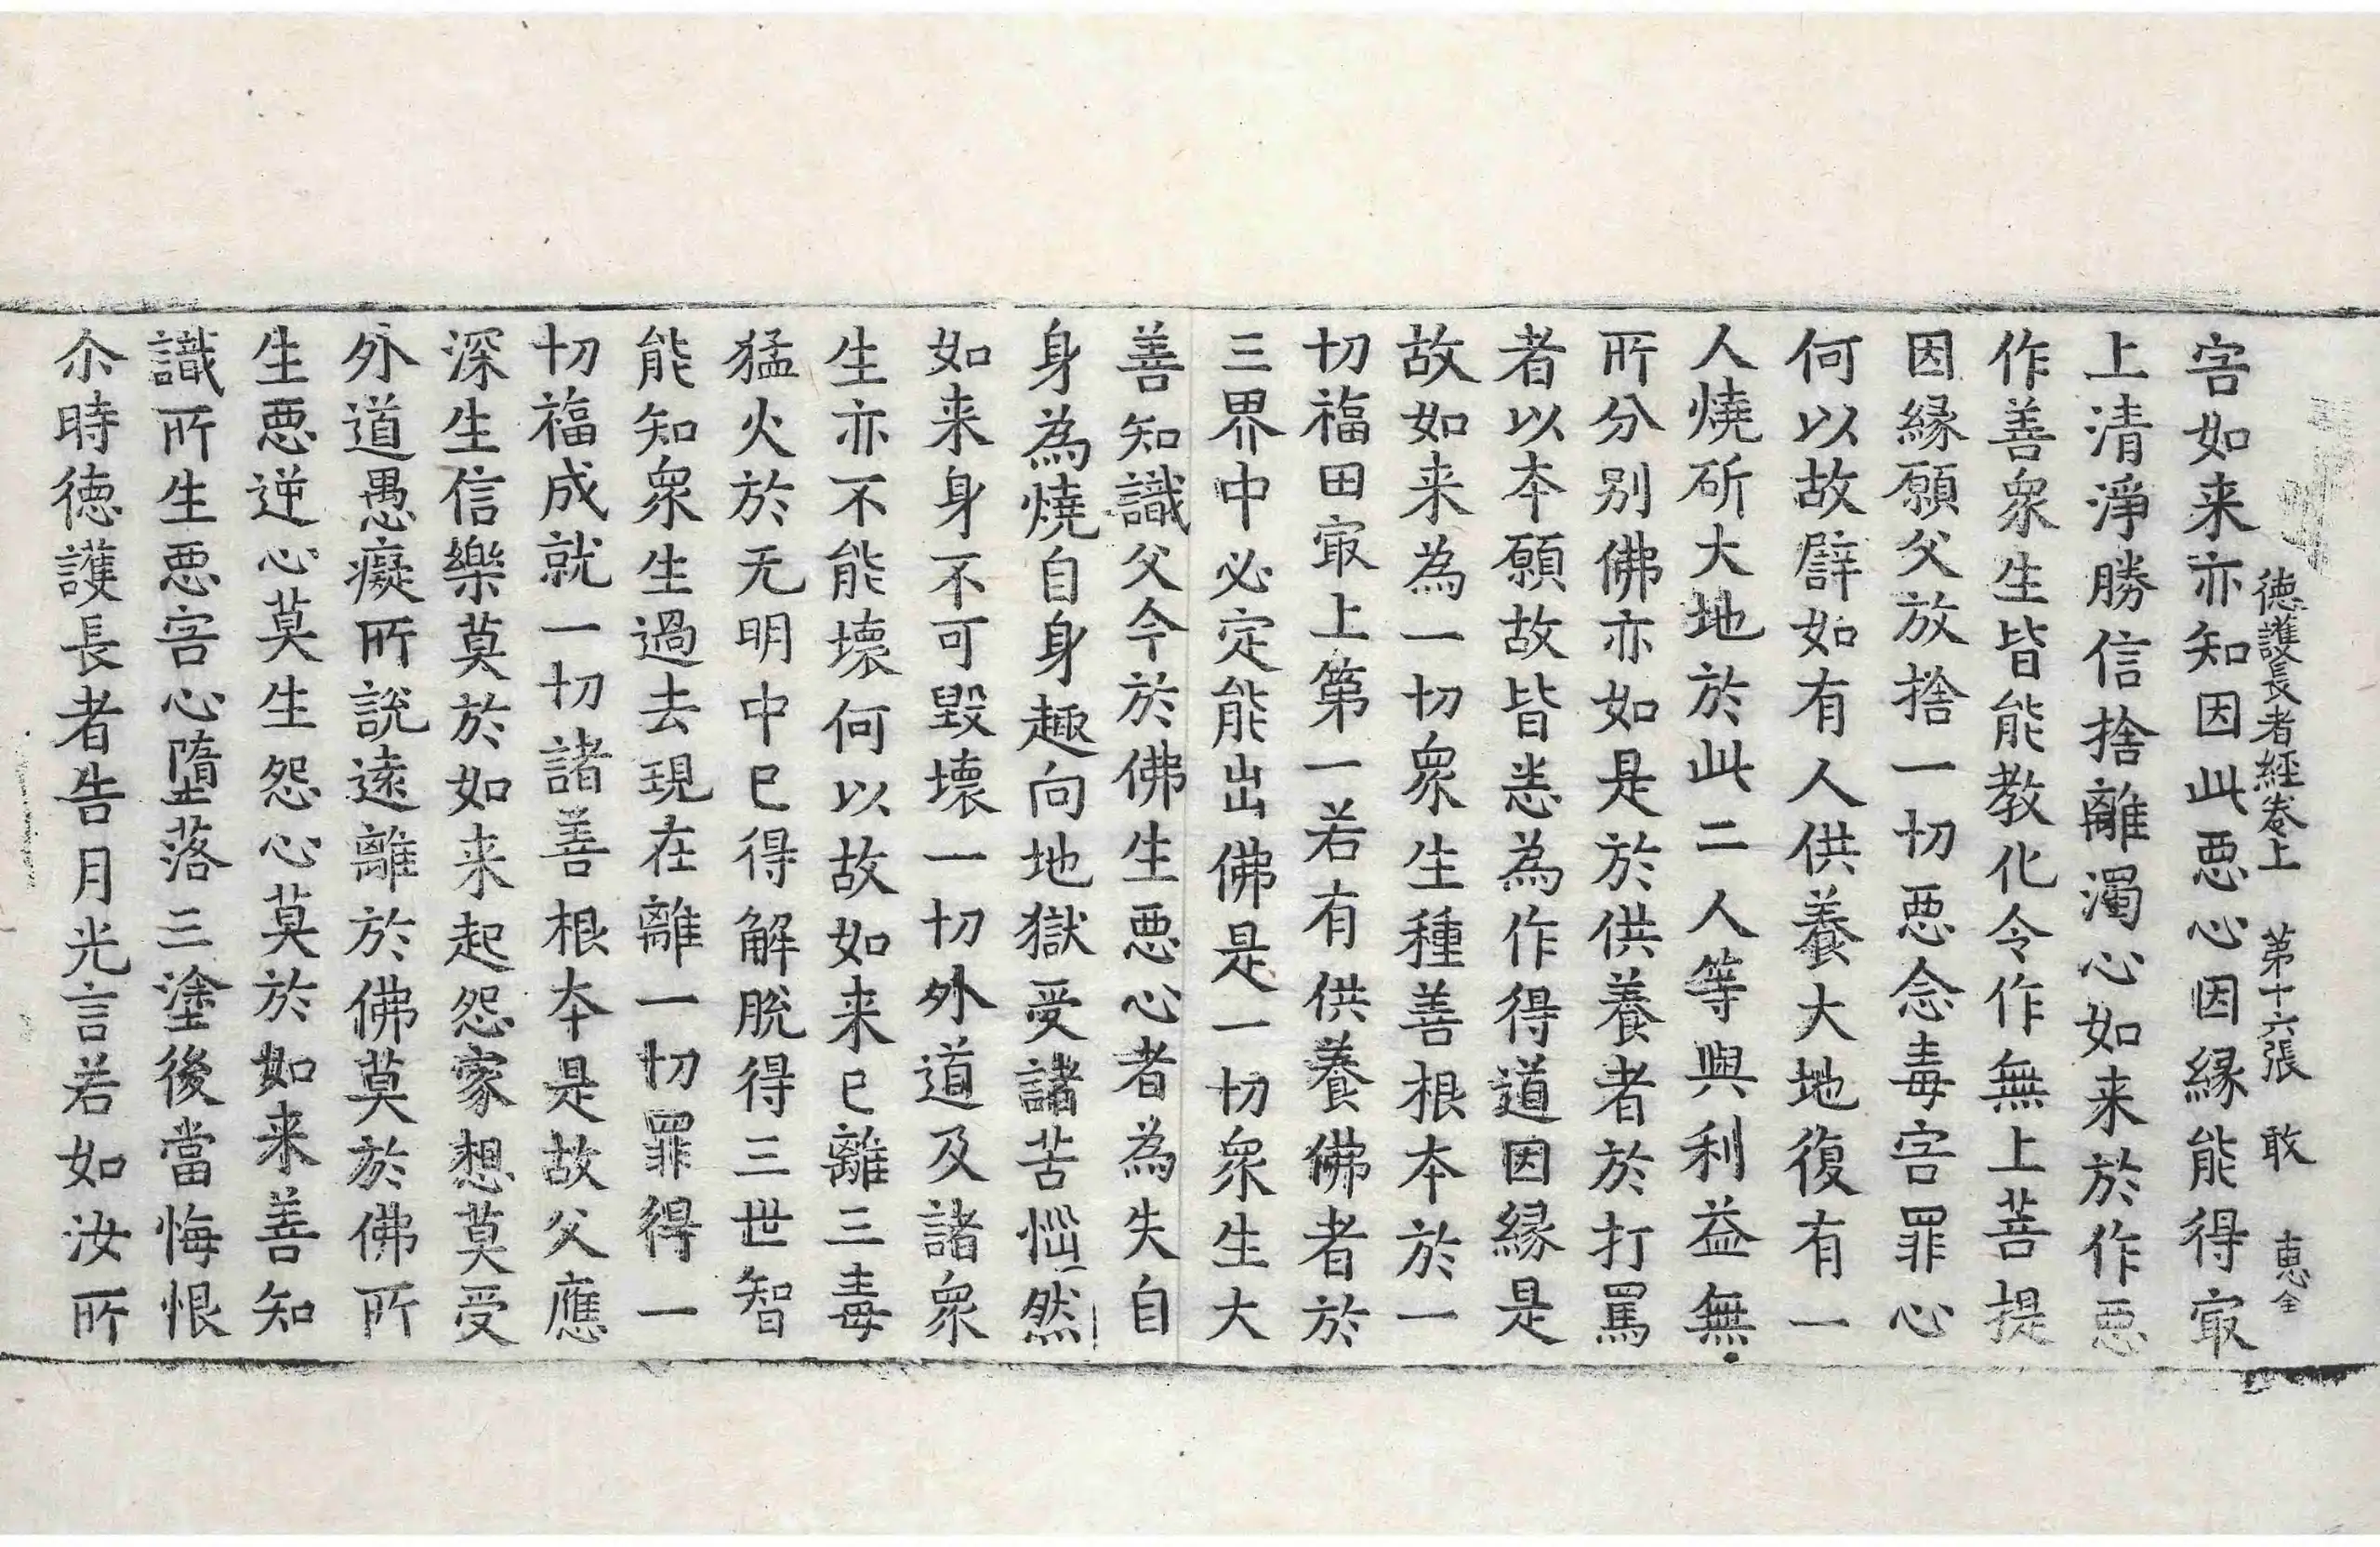 德護長者經卷上　第十六張　敢　惠全
害如来亦知因此惡心因縁能得㝡
上清淨勝信捨離濁心如来於作惡
作善衆生皆能教化令作無上菩提
因縁願父放捨一切惡念毒害罪心
何以故譬如有人供養大地復有一
人燒斫大地於此二人等與利益無
所分别佛亦如是於供養者於打罵
者以本願故皆悉為作得道因縁是
故如来為一切衆生種善根本於一
切福田㝡上第一若有供養佛者於
三界中必定能出佛是一切衆生大
善知識父今於佛生惡心者為失自
身為燒自身趣向地獄受諸苦惱然
如来身不可毀壞一切外道及諸衆
生亦不能壞何以故如来已離三毒
猛火於无明中已得解脫得三世智
能知衆生過去現在離一切罪得一
切福成就一切諸善根本是故父應
深生信樂莫於如来起怨家想莫受
外道愚癡所說遠離於佛莫於佛所
生惡逆心莫生怨心莫於如来善知
識所生惡害心墮落三塗後當悔恨
尒時德護長者告月光言若如汝所